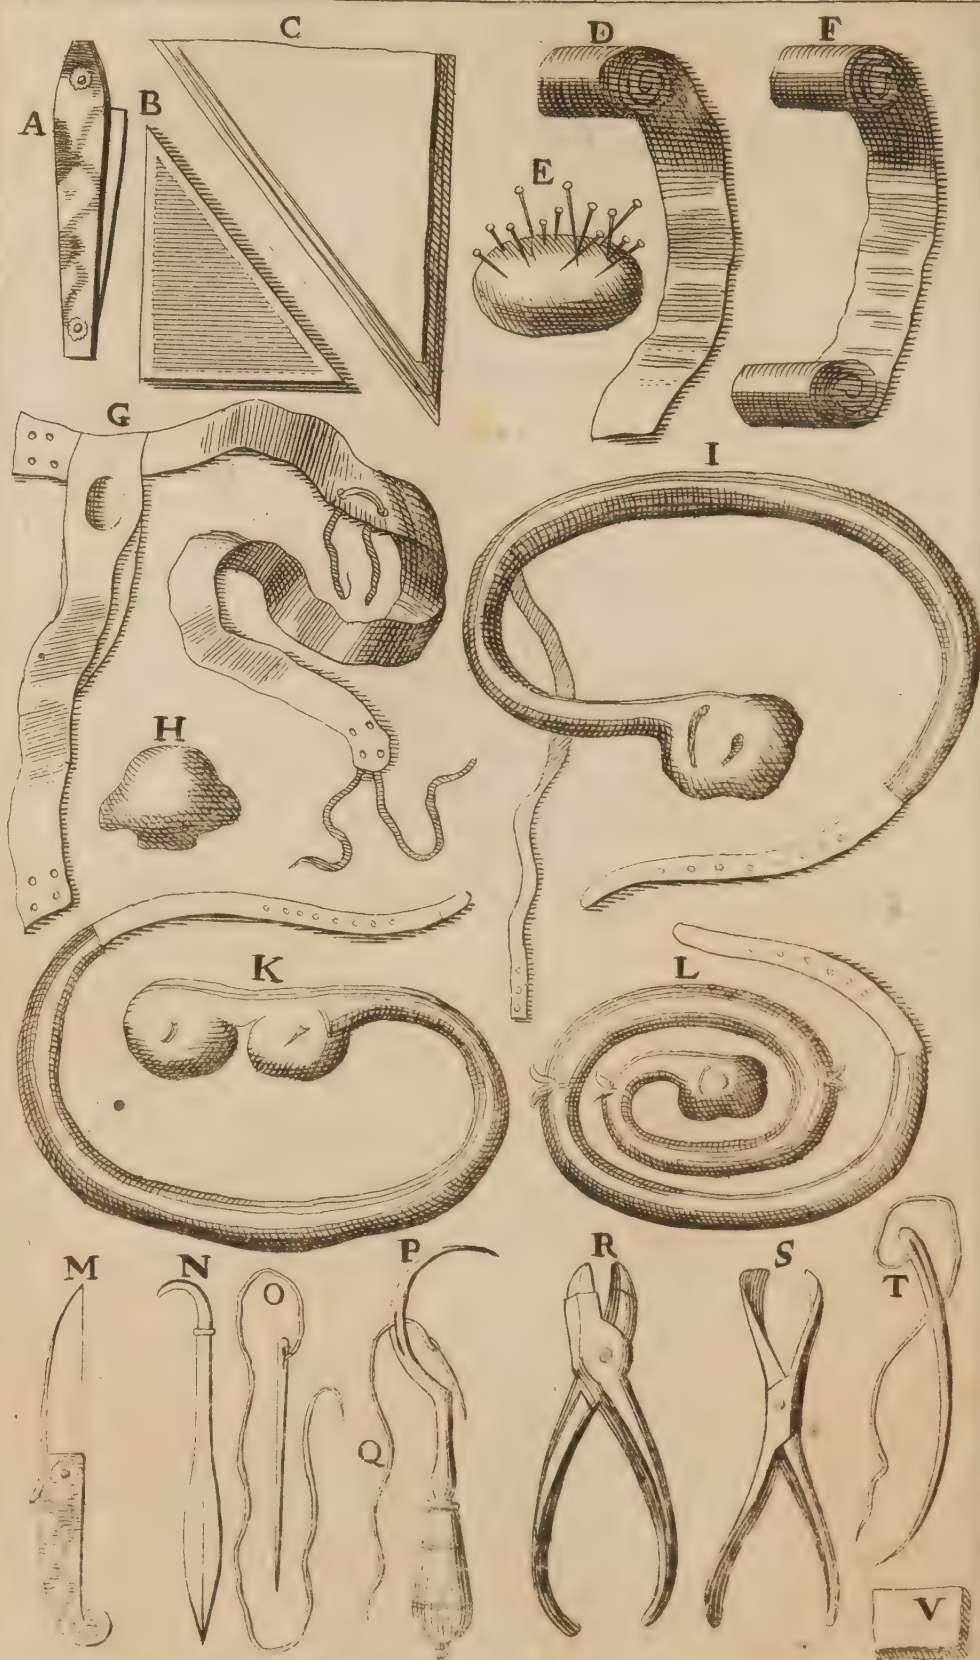 A
B
C
D
E
F
G
H
I
K
L
M
N
O
P
Q
R
S
T
V